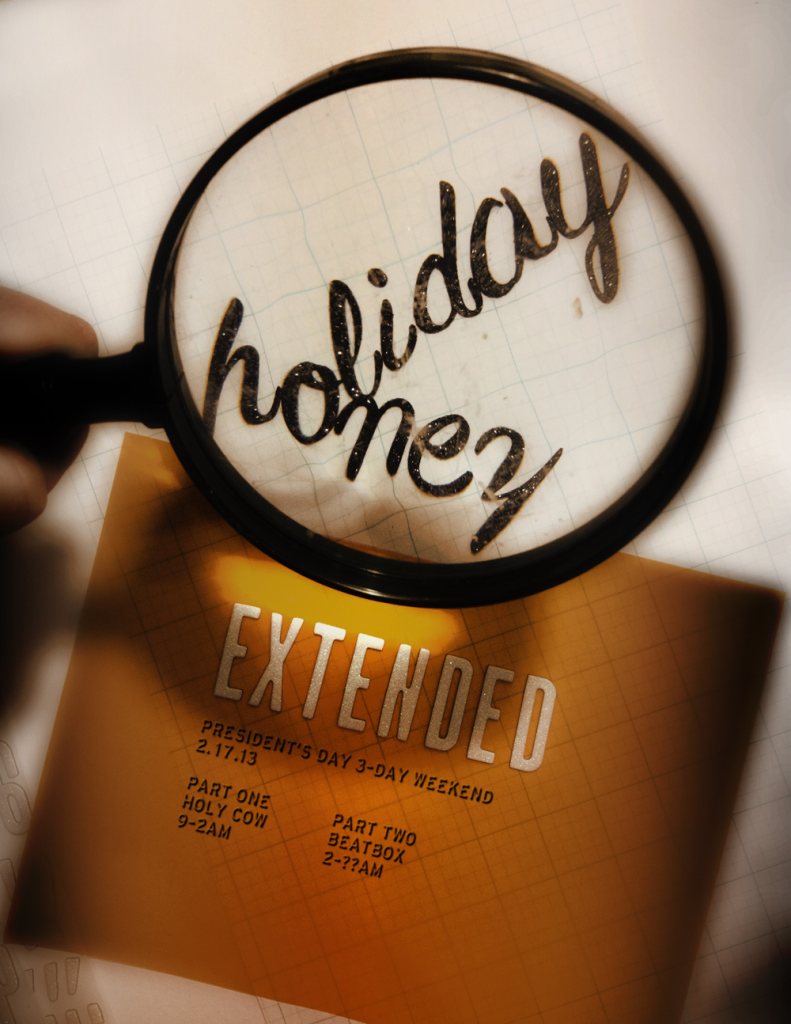 holiday
honey
EXTENDED
PRESIDENT'S DAY 3-DAY WEEKEND
2.17.13
PART ONE
HOLY COW
9-2AM
PART TWO
BEATBOX
2-??AM